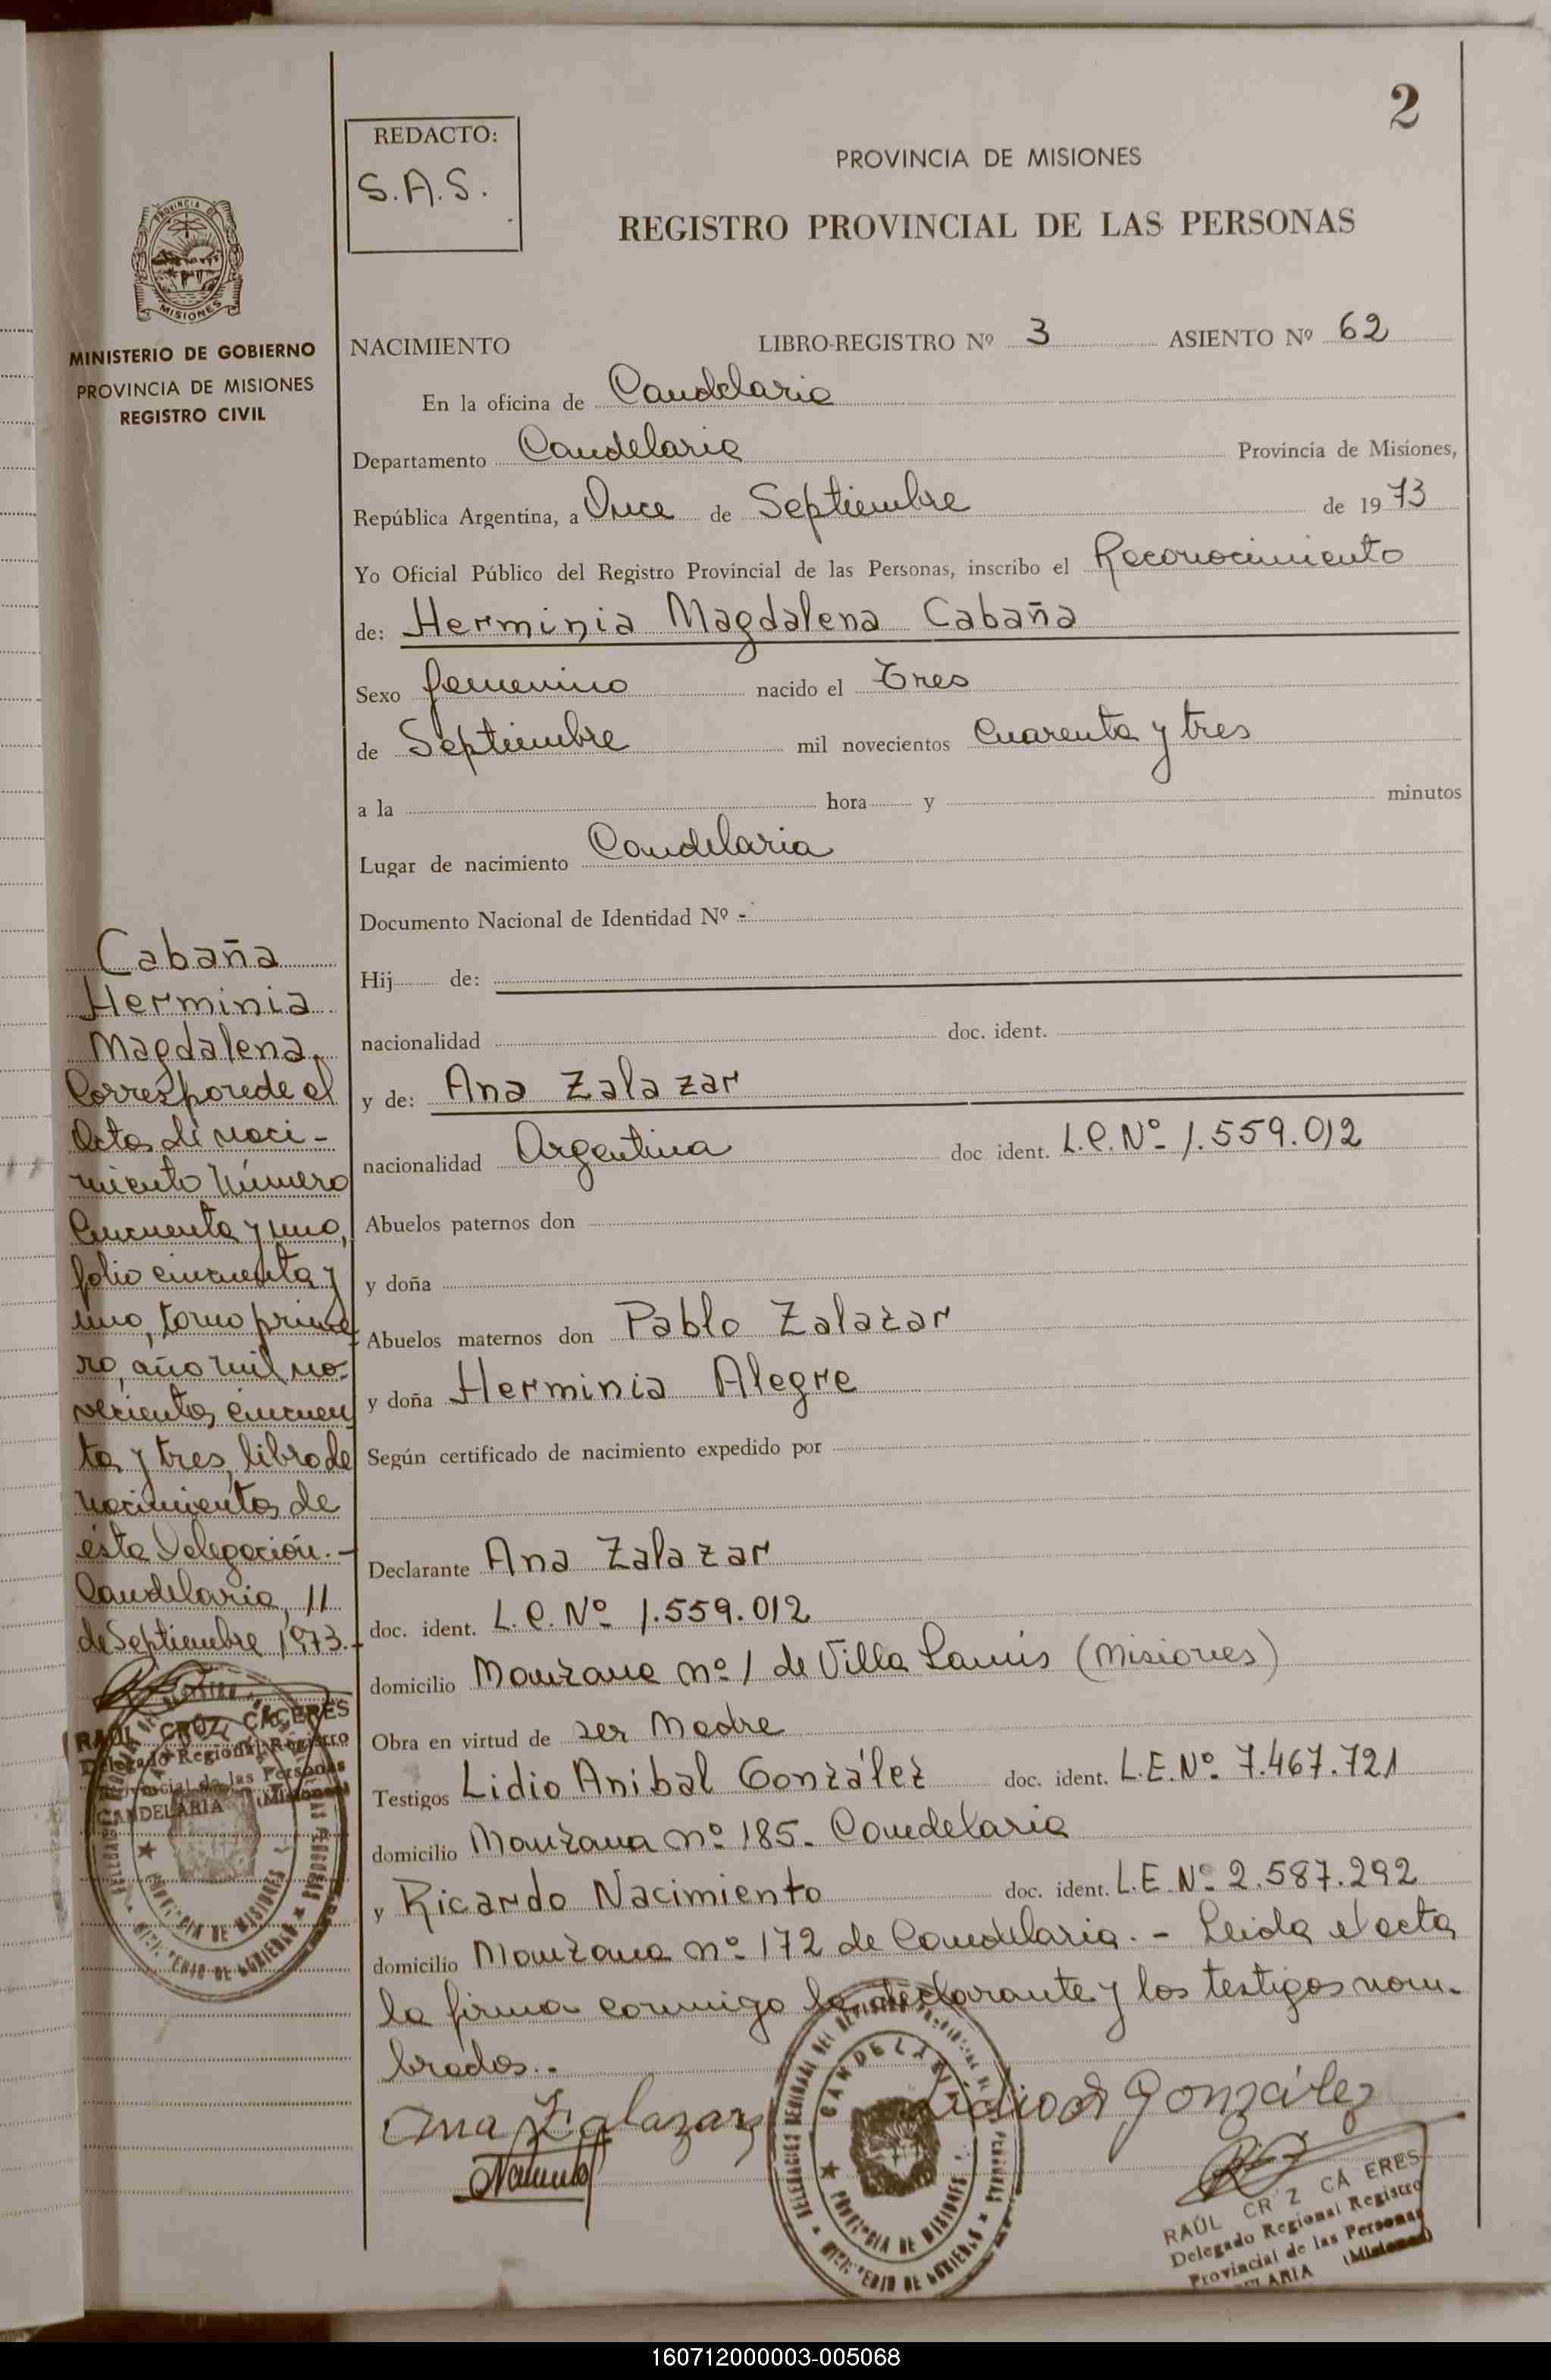 2
REDACTO:
S.A.S.
PROVINCIA DE MISIONES
REGISTRO PROVINCIAL DE LAS PERSONAS
PROVINCIA DE
MISIONES
MINISTERIO DE GOBIERNO
PROVINCIA DE MISIONES
REGISTRO CIVIL
NACIMIENTO LIBRO-REGISTRO Nº 3 ASIENTO Nº 62
En la oficina de Candelaria
Departamento Candelaria Provincia de Misiones,
República Argentina, a Once de Septiembre de 1973
Yo Oficial Público del Registro Provincial de las Personas, inscribo el Reconocimiento
de: Herminia Magdalena Cabaña
Sexo femenino nacido el Tres
de Septiembre mil novecientos Cuarenta y tres
a la hora y minutos
Lugar de nacimiento Candelaria
Documento Nacional de Identidad Nº -
Hij de:
nacionalidad doc. ident.
y de: Ana Zalazar
nacionalidad Argentina doc ident. L.C.Nº 1.559.012
Abuelos paternos don
y doña
Abuelos maternos don Pablo Zalazar
y doña Herminia Alegre
Según certificado de nacimiento expedido por
Declarante Ana Zalazar
doc. ident. L.C.Nº 1.559.012
domicilio Manzana nº 1 de Villa Lanús (Misiones)
Obra en virtud de ser Madre
Testigos Lidio Anibal González doc. ident. L.E.Nº 7.467.721
domicilio Manzana nº 185. Candelaria
y Ricardo Nacimiento doc. ident. L.E Nº 2.587.292
domicilio Manzana nº 172 de Candelaria. - Leida el acta
la firma conmigo la declarante y los testigos nom-
brados..
Cabaña
Herminia
Magdalena.
Corresponde al
Acta de naci-
miento número
Cincuenta y uno,
folio cincuenta y
uno, tomo prime-
ro, año mil no-
vecientos cincuen
ta y tres, libro de
nacimientos de
ésta Delegación.-
Candelaria, 11
de Septiembre 1973.-
RAÚL CRUZ CACERES
Delegado Regional Registro
Provincial de las Personas
CANDELARIA (Misiones)
PROVINCIA DE MISIONES
MINISTERIO DE GOBIERNO
Ana Zalazar
Lidio A González
CANDELARIA
PROVINCIA DE MISIONES
MINISTERIO DE GOBIERNO
RAÚL CR Z CA ERES
Delegado Regional Registro
Provincial de las Personas
LARIA (Misiones)
160712000003-005068